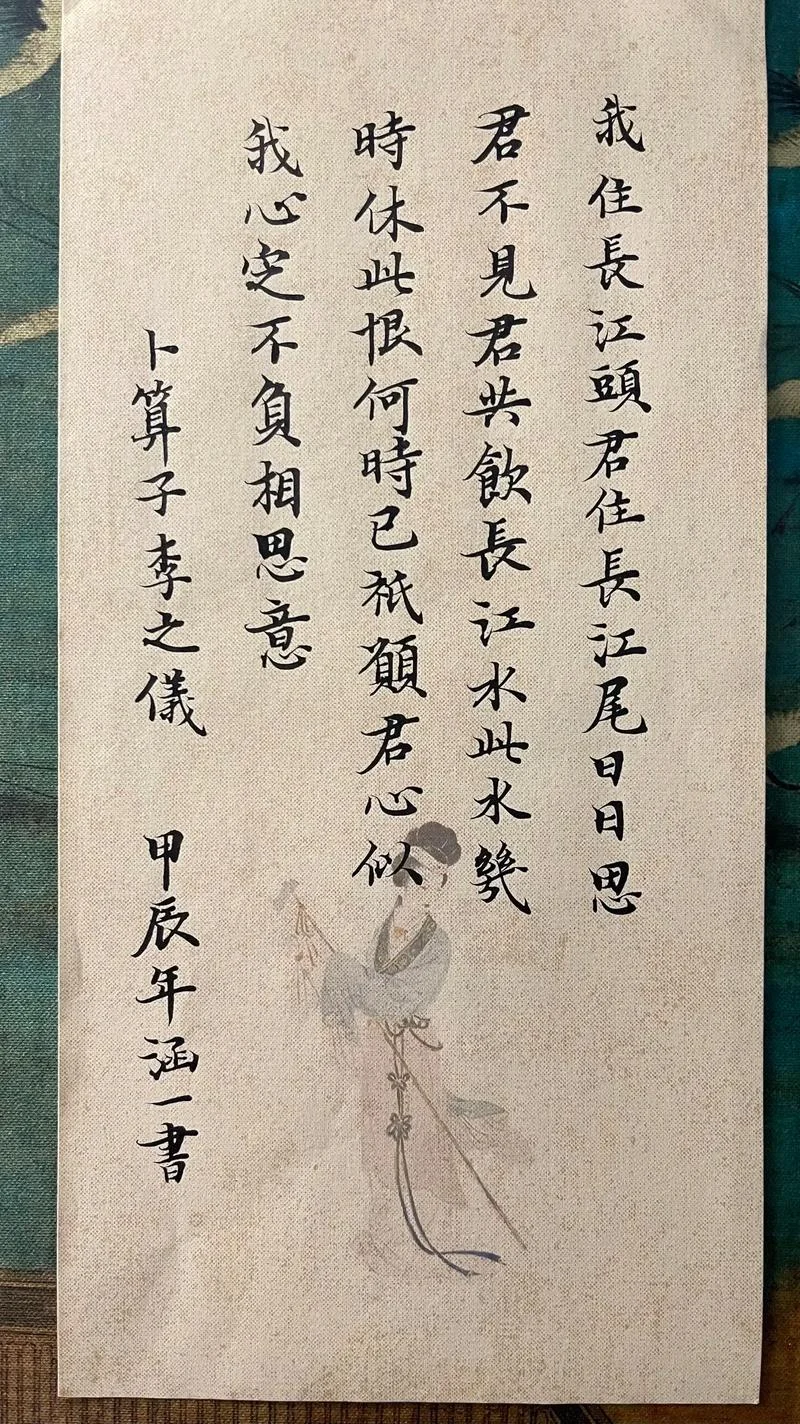 我住長江頭君住長江尾日日思
君不見君共飲長江水此水幾
時休此恨何時已祇願君心似
我心定不負相思意
卜算子李之儀 甲辰年涵一書